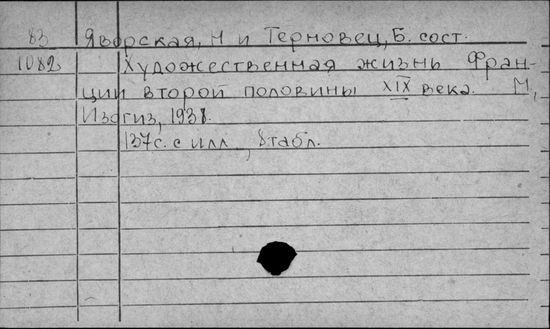 83 Яворская, Н и Терновец, Б. сост.
1082 Художественная жизнь Фран-
ции второй половины XIX века. М,
Изогиз, 1938.
137с. с илл, 8табл.